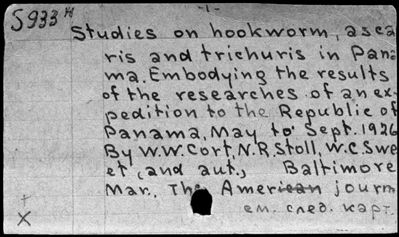 S933 H -1-
Studies on hookworm, asca
ris and trichuris in Pana
ma. Embodying the results
of the researches of an ex-
pedition to the Republic of
Panama, May to Sept. 1926
By W.W. Cort, N.R. Stoll, W.C. Swe
et, and aut., Baltimore
Mar., The American journ
ем. след. карт.
+
X